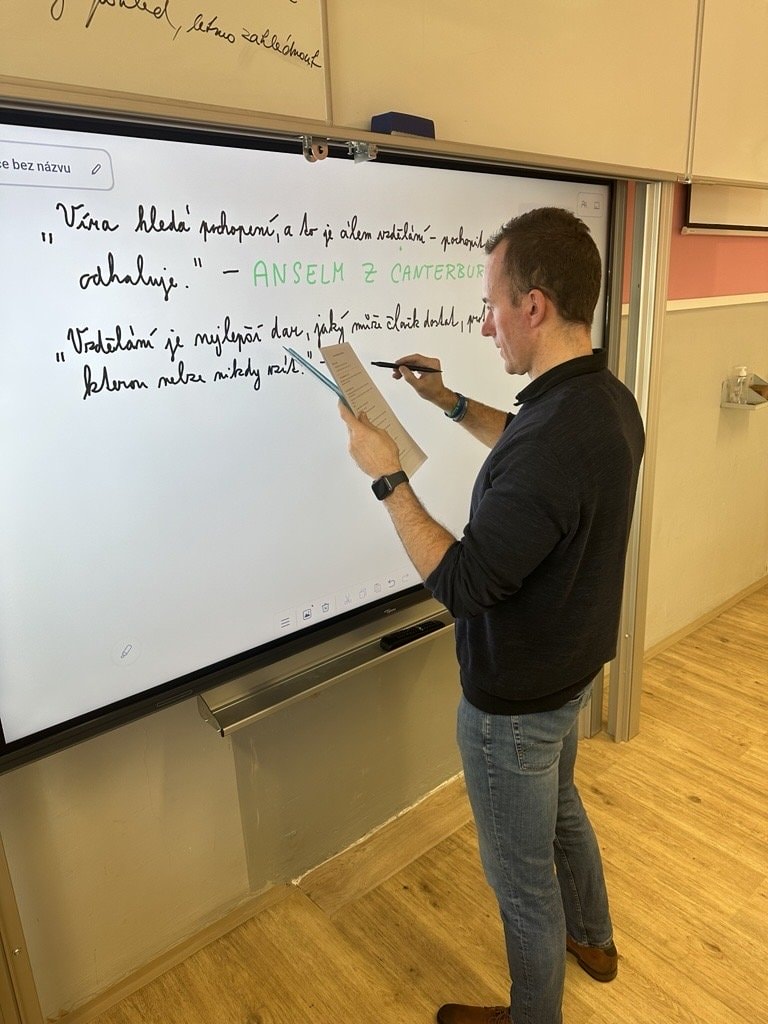 pohled, letmo zahlédnout
ce bez názvu
„Víra hledá pochopení, a to je cílem vzdělání – pochopit
odhaluje." – ANSELM Z CANTERBUR
„Vzdělání je nejlepší dar, jaký může člověk dostat,
kterou nelze nikdy vzít." –